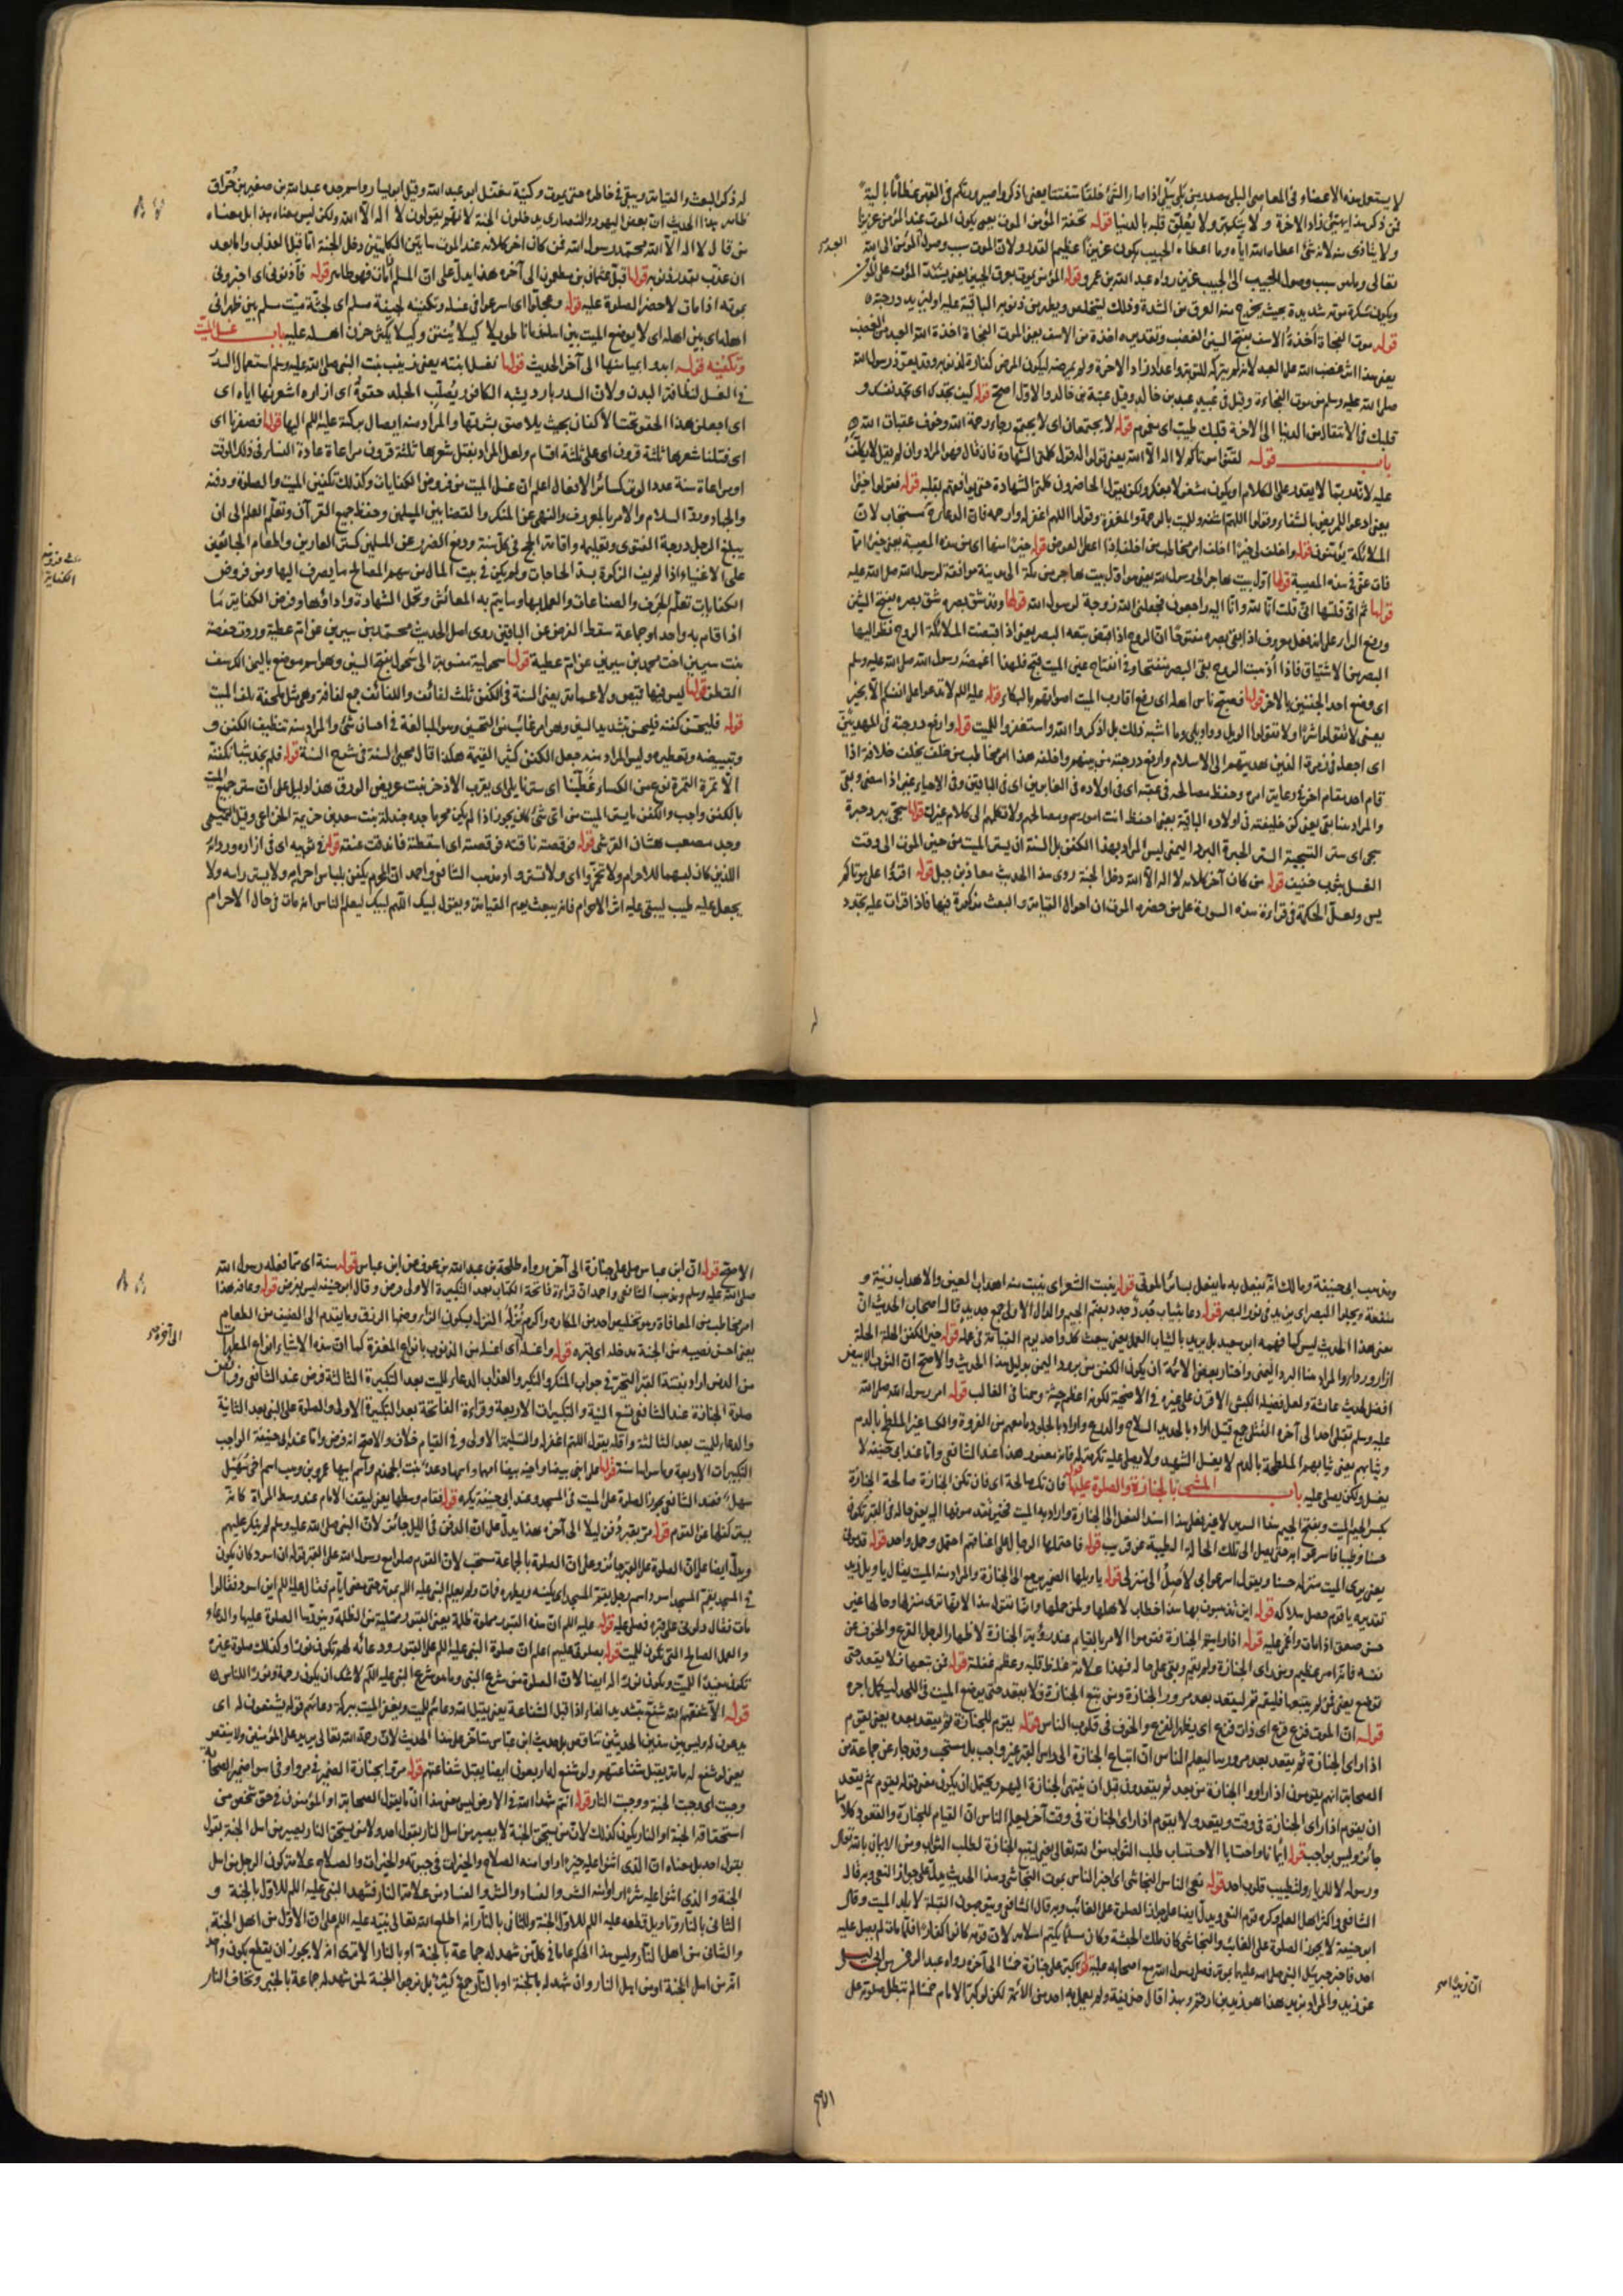 لا يستعمل هذه الاعضاء في المعاصي البلى مصدر من بَلِيَ يَبْلَى اذا صار الشئ خلقا متفتتا يعني اذكروا صيرورتكم في القبر عظاما بالية
فمن ذكر هذا يهيّئ زاد الاخرة و لا يتكبر و لا يعلق قلبه بالدنيا قوله تحفة المؤمن الموت يعني يكون الموت عند المؤمن عزيزا
ولا يتاذى منه لانه شئ اعطاه الله اياه وما اعطاه الحبيب يكون عزيزا عظيم القدر ولان الموت سبب وصول المؤمن الى الله
تعالى وما هو سبب وصول الحبيب الى الحبيب عزيز رواه عبد الله بن عمرو قوله المؤمن يموت بعرق الجبين يعني يشتد الموت على المؤمن
ويكون سكرة موته شديدة بحيث يخرج منه العرق من الشدة وذلك ليتخلص ويطهر من ذنوبه الباقية عليه او ليزيد درجته
قوله موت الفجاة اخذة الاسف بفتح السين الغضب وتقديره اخذة من الاسف يعني الموت الفجاة اخذة الله العبد من الغضب
يعني هذا اثر غضب الله على العبد لانه لم يتركه للتوبة واعداد زاد الاخرة ولم يمرضه ليكون المرض كفارة لذنوبه وقد تعوذ رسول الله
صلى الله عليه وسلم من موت الفجاءة وقيل في عبيد عبد بن خالد وقيل عبدة بن خالد والاول اصح قوله كيف تجدك اى تجد نفسك و
قلبك في الانتقال من الدنيا الى الاخرة قلبك طيب اى مغموم قوله لا يجتمعان اى لا يجتمع رجاء رحمة الله وخوف عقاب الله
باب قوله لقنوا موتاكم لا اله الا الله يعني قولوا له قول كلمتي الشهادة فان قال فهو المراد وان لم يقل لا يكلف
عليه لانه ربما لا يقدر على الكلام او يكون مشغولا بفكر ولكن يقول الحاضرون كلمتي الشهادة حتى يوافقهم بقلبه قوله فقولوا خيرا
يعني ادعوا للمريض بالشفاء وقولوا اللهم اشفه وللميت بالرحمة والمغفرة وقولوا اللهم اغفر له وارحمه فان الدعاء مستجاب لان
الملائكة يؤمنون قوله واخلف لي خيرا اخلف امر مخاطب من اخلف اذا اعطى العوض قوله خيرا منها اى من هذه المصيبة يعني خيرا مما
فات عني في هذه المصيبة قولها اول بيت هاجر الى رسول الله يعني هو اول بيت هاجر من مكة الى مدينة موافقة لرسول الله صلى الله عليه
قولها ثم اني قلتها اي قلت انا لله وانا اليه راجعون فجعلني الله زوجة لرسول الله قولها وقد شق بصره شق بصره بفتح الشين
ورفع الراء على انه فعل معروف اذا بقي بصره مفتوحا ان الروح اذا قبض تبعه البصر يعني اذا قبضت الملائكة الروح نظر اليها
البصر من الاشتياق فاذا ذهبت الروح بقي البصر منفتحا وفي انفتاح عين الميت قبح فلهذا اغمضه رسول الله صلى الله عليه وسلم
اى وضع احد الجفنين بالاخر قولها فضج ناس من اهله اى رفع اقارب الميت اصواتهم بالبكاء قوله عليه اللم لا تدعوا على انفسكم الا بخير
يعني لا تقولوا شرا ولا تقولوا الويل و واويلي وما اشبه ذلك بل اذكروا الله واستغفروا للميت قوله وارفع درجته في المهديين
اى اجعله في زمرة الذين هديتهم الى الاسلام وارفع درجته من بينهم واخلفه هذا امر مخاطب من خلف يخلف خلافة اذا
قام احد بمقام اخر في رعاية امره وحفظ مصالحه في عقبه اى في اولاده في الغابرين اى في الباقين وفي الاحياء غبر اذا مضى وبقي
والمراد هنا بقي يعني كن خليفته في اولاده الباقية يعني احفظ انت امورهم ومصالحهم ولا تكلهم الى كلام غيرك قولها سجي ببرد حبرة
سجي اى ستر التسجية الستر الحبرة البرد اليمني ليس المراد بهذا الكفن بل السنة ان يستر الميت من حين الموت الى وقت
الغسل بثوب خفيف قوله من كان آخر كلامه لا اله الا الله دخل الجنة روى هذا الحديث معاذ بن جبل قوله اقرؤا على موتاكم
يس ولعل الحكمة في قراءة هذه السورة على من حضره الموت ان احوال القيامة والبعث مذكورة فيها فاذا قرات عليه تجدد
له ذكر البعث والقيامة ويبقى في خاطره حتى يموت وكنية معقل ابو عبد الله وقيل ابو يسار واسم جده عبد الله بن صغير بن حراق
ظاهر هذا الحديث ان بعض اليهود والنصارى يدخلون الجنة لانهم يقولون لا اله الا الله ولكن ليس معناه هذا بل معناه
من قال لا اله الا الله محمد رسول الله فمن كان اخر كلامه عند الموت هاتين الكلمتين دخل الجنة اما قبل العذاب واما بعد
ان عذب بقدر ذنوبه قولها قبل عثمان بن مظعون الى آخره هذا يدل على ان المسلم اذا مات فهو طاهر قوله فآذنوني اى اخبروني
بموته اذا مات لاحضر الصلوة عليه قوله وعجلوا اى اسرعوا في غسله وتكفينه لجيفة مسلم اى لجثة ميت مسلم بين ظهراني
اهله اى بين اهله اى لا يوضع الميت بين اهله زمانا طويلا كيلا ينتن وكيلا يكثر حزن اهله عليه باب غسل الميت
وتكفينه قوله ابدوا بميامنها الى آخر الحديث قولها نغسل ابنته يعني زينب بنت النبي صلى الله عليه وسلم استعمال السدر
في الغسل لنظافة البدن ولان السدر بارد يشبه الكافور يصلب الجلد حقوه اى ازاره اشعرنها اياه اى
اى اجعلن هذا الحقو تحت الاكفان بحيث يلاصق بشرتها والمراد منه ايصال بركته عليه اللم اليها قولها فضفرنا اى
اى فتلنا شعرها ثلثة قرون اى على ثلثة اقسام ولعل المراد بفتل شعرها ثلثة قرون مراعاة عادة النساء في ذلك الوقت
او مراعاة سنة عدد الوتر كسائر الافعال اعلم ان غسل الميت من فروض الكفايات وكذلك تكفين الميت والصلوة ودفنه
والجهاد ورد السلام والامر بالمعروف والنهي عن المنكر والقضا بين المسلمين وحفظ جميع القرآن وتعلم العلم الى ان
يبلغ الرجل درجة الفتوى وتعليمه واقامة الحج في كل سنة ودفع الضرر عن المسلمين كستر العارين واطعام الجائعين
على الاغنياء اذا لم يف الزكوة بسد الحاجات ولم يكن في بيت المال من سهم المصالح ما يصرف اليها ومن فروض
الكفايات تعلم الحرف والصناعات والعمل بها وما يتم به المعائش وتحمل الشهادة واداؤها وفرض الكفاية ما
اذا قام به واحد او جماعة سقط الفرض عن الباقين روى اصل الحديث محمد بن سيرين عن ام عطية وروت حفصة
بنت سيرين اخت محمد بن سيرين عن ام عطية قولها سحولية منسوبة الى سحول بفتح السين وهو اسم موضع باليمن الكرسف
القطن قولها ليس فيها قميص ولا عمامة يعني السنة في الكفن ثلث لفائف واللفائف جمع لفافة وهو مثل ملحفة يلف الميت
قوله فليحسن كفنه فليحسن بتشديد السين وهو امر غائب من التحسين وهو المبالغة في احسان شئ والمراد منه تنظيف الكفن و
وتبييضه وتعطيره وليس المراد منه جعل الكفن كثير القيمة هكذا قال محيي السنة في شرح السنة قوله فلم يجد شيئا نكفنه
الا نمرة النمرة نوع من الكساء غطينا اى سترنا يلي اى يقرب الاذخر نبت عريض الورق هذا دليل على ان ستر جميع الميت
بالكفن واجب والكفن ما يستر الميت من اى شئ كان يجوز اذا لم يكن محرما
وجد مصعب هشام القرشي قوله فوقصته ناقته فوقصته اى اسقطته فاندقت عنقه قوله في ثوبيه اى في ازاره وردائه
اللذين كان لبسهما للاحرام ولا تخمروا اى ولا تستروا ومذهب الشافعي واحمد ان المحرم يكفن بلباس احرامه ولا يستر راسه ولا
يجعل عليه طيب ليبقى عليه اثر الاحرام فانه يبعث يوم القيامة ويقول لبيك اللهم لبيك ليعلم الناس انه مات في حال الاحرام
٨٧
ومذهب ابي حنيفة ومالك انه يفعل به ما يفعل بسائر الموتى قوله ينبت الشعر اى ينبت منه اهداب العين
ويجلو البصر اى يزيد في نور البصر قوله دعا بثياب جدد جدد بضم الجيم والدال الاولى جمع جديد قال اصحاب الحديث ان
معنى هذا الحديث ليس كما فهمه ابو سعيد بل يريد بالثياب العمل يعني يبعث كل واحد يوم القيامة في عمله قوله خير الكفن الحلة الحلة
ازار ورداء والمراد هنا البرد اليمني واختار بعض الائمة ان يكون الكفن من برود اليمن بدليل هذا الحديث والاصح ان الثوب الابيض
افضل لحديث عائشة ولعل فضيلة الكبش الاقرن على غيره في الاضحية لكونه اعظم جثة وسمنا في الغالب قوله امر رسول الله صلى الله
عليه وسلم بقتلى احد الى آخره القتلى جمع قتيل اراد بالحديد السلاح والدرع واراد بالجلود ما معهم من الفروة والكساء غير الملطخ بالدم
وثيابهم يعني ثيابهم الملطخة بالدم لا يغسل الشهيد ولا يصلى عليه تكرمة له فانه مغفور هذا عند الشافعي واما عند ابي حنيفة لا
يغسل ولكن يصلى عليه باب المشي بالجنازة والصلوة عليها قوله فان تك صالحة اى فان تكن الجنازة صالحة الجنازة
بكسر الجيم الميت وبفتح الجيم السرير
حسنا وطيبا فاسرعوا به حتى يصل الى تلك الحالة الطيبة عن قريب قوله فاحتملها الرجال على اعناقهم احتمل وحمل واحد قوله قدموني
يعني يرى الميت منزله حسنا ويقول اسرعوا بي لاصل الى منزلي قوله يا ويلها الضمير يرجع الى الجنازة والمراد منه الميت
قوله اين تذهبون بها
حتى صعق اذا مات واغمي عليه قوله اذا رايتم الجنازة فقوموا الامر بالقيام عند رؤية الجنازة لاظهار الرجل الفزع والخوف عن
نفسه فانه امر عظيم ومن راى الجنازة ولم يقم وبقي على حاله فهذا علامة غلظ قلبه وعظم غفلته قوله فمن تبعها فلا يقعد حتى
توضع يعني من لم يتبعها فليقم ثم ليقعد بعد مرور الجنازة ومن تبع الجنازة فلا يقعد حتى يوضع الميت في اللحد ليكمل اجره
قوله ان الموت فزع فزع اى ذات فزع اى يظهر الفزع والخوف في قلوب الناس قوله يقوم للجنازة ثم يقعد بعده يعني يقوم
اذا راى الجنازة ثم يقعد بعد مرورها ليعلم الناس ان اتباع الجنازة الى راس القبر غير واجب بل مستحب وقد جاء عن جماعة من
الصحابة انهم يقومون اذا راوا الجنازة من بعد ثم يقعدون قبل ان ينتهي الجنازة اليهم ويحتمل ان يكون معنى قوله يقوم ثم يقعد
ان يقوم اذا راى الجنازة في وقت ويقعد ولا يقوم اذا راى الجنازة في وقت آخر ليعلم الناس ان القيام للجنازة والقعود كلاهما
جائز وليس بواجب قوله ايمانا واحتسابا الاحتساب طلب الثواب من الله تعالى يعني ليتبع الجنازة لطلب الثواب ومن الايمان بالله تعالى
ورسوله لا للرياء ولتطييب قلوب احد قوله نعى للناس النجاشي اى اخبر الناس بموت النجاشي وهذا الحديث يدل على جواز النعي وبه قال
الشافعي واكثر اهل العلم وكره قوم النعي ويدل ايضا على جواز الصلوة على الغائب وبه قال الشافعي ويتوجهون القبلة لا بلد الميت وقال
ابو حنيفة لا يجوز الصلوة على الغائب والنجاشي كان ملك الحبشة وكان مسلما يكتم اسلامه لان قومه كانوا كفارا فلما مات لم يصل عليه
احد فاخبر جبريل النبي صلى الله عليهما بموته فصلى رسول الله مع اصحابه عليه قوله كبر على جنازة خمسا الى آخره رواه عبد الرحمن بن ابي ليلى
عن زيد والمراد بزيد هذا هو زيد بن ارقم وبهذا قال حذيفة ولم يعمل به احد من الائمة لكن لو كبر الامام خمسا لم تبطل صلوته على
الاصح قوله ان ابن عباس صلى على جنازة الى آخره رواه طلحة بن عبد الله بن عوف عن ابن عباس قوله سنة اى مما فعله رسول الله
صلى الله عليه وسلم ومذهب الشافعي واحمد ان قراءة فاتحة الكتاب بعد التكبيرة الاولى فرض وقال ابو حنيفة ليس بفرض قوله وعافه هذا
امر مخاطب من المعافاة وهو تخليص احد من المكاره واكرم نزله النزل بسكون الزاء وضمها الرزق وما يقدم الى الضيف من الطعام
يعني احسن نصيبه من الجنة مدخله اى قبره قوله واغسله اى اغسله من الذنوب بانواع المغفرة كما ان هذه الاشياء انواع المطهرات
من الدنس اراد بفتنة القبر التحير في جواب المنكر والنكير والعذاب الدعاء للميت بعد التكبيرة الثالثة فرض عند الشافعي وفرض
صلوة الجنازة عند الشافعي تسع النية والتكبيرات الاربعة وقراءة الفاتحة بعد التكبيرة الاولى والصلوة على النبي بعد الثانية
والدعاء للميت بعد الثالثة واقله يقول اللهم اغفر له والتسليمة الاولى وفي القيام خلاف والاصح انه فرض واما عند ابي حنيفة الواجب
التكبيرات الاربعة وما سواها سنة قولها على ابني بيضاء واخيه بيضا امهما واسمها دعد بنت الجحدم واسم ابيهما عمرو بن وهب اسم اخي سهيل
سهل فعند الشافعي يجوز الصلوة على الميت في المسجد وعند ابي حنيفة يكره قوله فقام وسطها يعني ليقف الامام عند وسط المراة كانه
يستر كفلها عن القوم قوله مر بقبر دفن ليلا الى آخره هذا يدل على ان الدفن في الليل جائز لان النبي صلى الله عليه وسلم لم ينكر عليهم
ويدل ايضا على ان الصلوة على القبر جائز وعلى ان الصلوة بالجماعة مستحب لان القوم صلوا مع رسول الله على القبر قوله ان اسود كان يكون
في المسجد يقم المسجد اسود اسم رجل يقم المسجد اى يكنسه ويطهره فمات ولم يعلم النبي عليه اللم بموته حتى مضى ايام فقال عليه اللم اين اسود فقالوا
مات فقال دلوني على قبره فصلى عليه قوله عليه اللم ان هذه القبور مملوة ظلمة يعني القبور ممتلية من الظلمة
والعمل الصالح الذي يكون للميت قوله بصلوتي عليهم اعلم ان صلوة النبي عليه اللم على القبور ودعائه لهم تكون نورا وكذلك صلوة غيره
قوله الا شفعهم الله شفع بتشديد الفاء اذا قبل الشفاعة يعني يقبل الله دعاءهم للميت ويغفر الميت ببركة دعائهم قوله يشفعون له اى
يدعون له وليس بين هذين الحديثين تناقض بل حديث ابن عباس متاخر عن هذا الحديث لان رحمة الله تعالى يزيد على المؤمنين ولا ينقص
يعني لو شفع له مائة يقبل شفاعتهم ولو شفع له اربعون ايضا يقبل شفاعتهم قوله مروا بجنازة الضمير في مروا و في اسواء ضمير الصحابة
وجبت اى وجبت الجنة ووجبت النار قوله انتم شهداء الله في الارض ليس معنى هذا ان ما يقول الصحابة او المؤمنون في حق شخص من
استحقاقه الجنة او النار يكون كذلك لان من يستحق الجنة لا يصير من اهل النار بقول احد ولا من يستحق النار يصير من اهل الجنة بقول
يقول احد بل معناه ان الذي اثنوا عليه خيرا راوا منه الصلاح والخيرات في حيوته والخيرات والصلاح علامة كون الرجل من اهل
الجنة والذي اثنوا عليه شرا راوا منه الشر والفساد والشر والفساد من علامة النار فشهد النبي عليه اللم للاول بالجنة و
الثاني بالنار وتاويل قطعه عليه اللم للاول الجنة وللثاني بالنار انه اطلع الله تعالى نبيه عليه اللم على ان الاول من اهل الجنة
والثاني من اهل النار وليس هذا الحكم عاما في كل من شهد له جماعة بالجنة او بالنار الا ترى انه لا يجوز ان يقطع بكون واحد
انه من اهل الجنة او من اهل النار وان شهد له بالجنة او بالنار جمع كثير بل نرجوا الجنة لمن شهد له جماعة بالخير ونخاف النار
٨٨